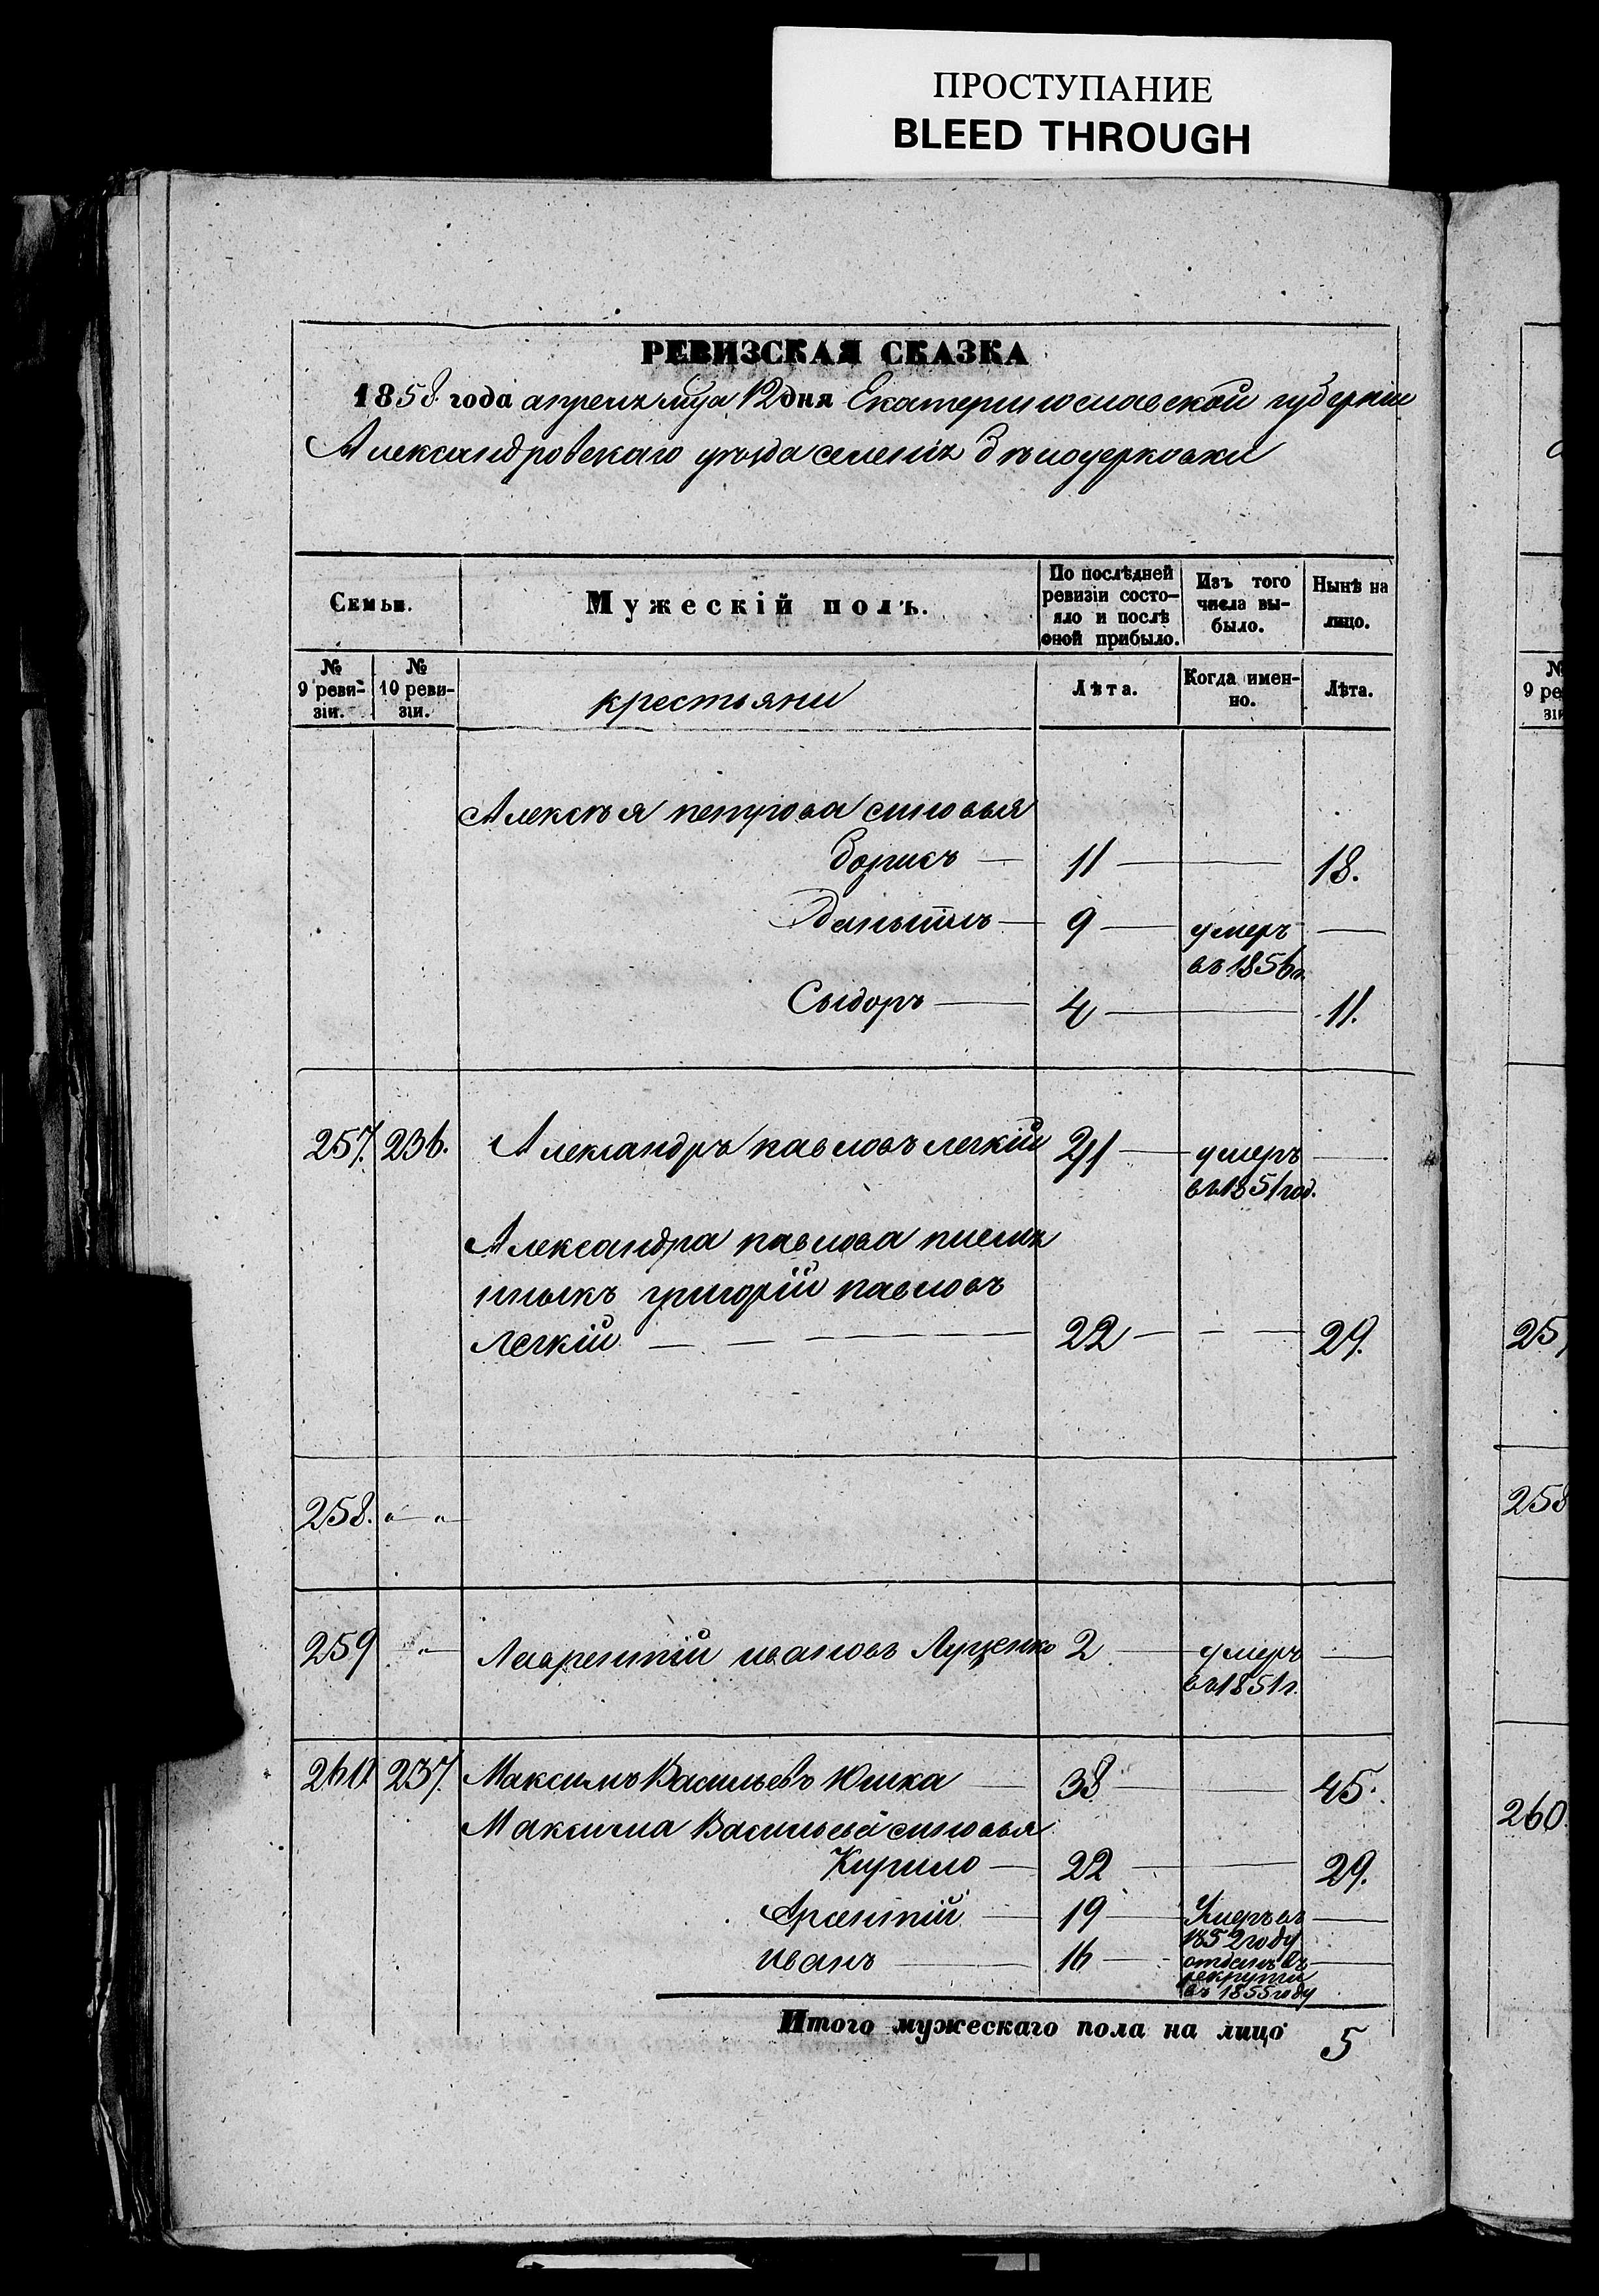 ПРОСТУПАНИЕ
BLEED THROUGH
РЕВИЗСКАЯ СКАЗКА
1858 года апреля мца 12 дня Екатеринославской губернии
Александровскаго уезда селения Белоцерковки
Семьи.
Мужескій полъ.
По послѣдней ревизіи состо-
яло и послѣ
оной прибыло.
Изъ того
числа вы-
было.
Нынѣ на
лицо.
№
9 реви-
зіи.
№
10 реви-
зіи.
крестьяни
Лѣта.
Когда имен-
но.
Лѣта.
Алексѣя петрова сыновья
борисъ — 11 — 18.
Даныилъ — 9 — умеръ —
въ 1856 г.
Сыдоръ — 4 — 11.
257. 236. Александръ павловъ легкій 21 — умеръ —
въ 1851 год.
Александра павлова племя
ныкъ григорій павловъ
Легкій — — — 22 — — — 29.
258. „ — „
259 — „ — Лаврентій ивановъ Луценко 2 — умеръ —
въ 1851 г.
260 237. Максимъ Васильевъ Юшка — 38 — 45.
Максима Васильева сыновья
Кирило — 22 — 29.
Арсентій — 19 — Умеръ въ —
1852 году
иванъ — 16 — отданъ въ —
рекруты
въ 1855 году
Итого мужескаго пола на лицо 5
№
9 ре
зіи
25
258
260